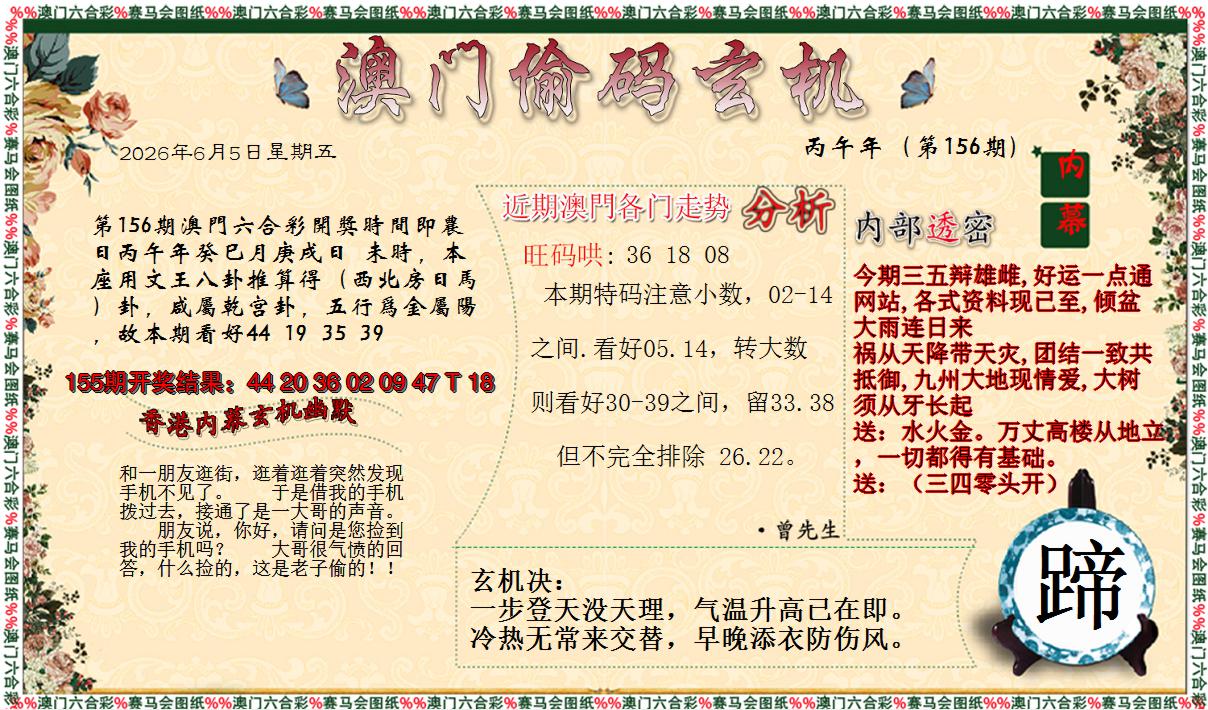 %%澳门六合彩%赛马会图纸%%澳门六合彩%赛马会图纸%%澳门六合彩%赛马会图纸%%澳门六合彩%赛马会图纸%%澳门六合彩%赛马会图纸%%澳门六合彩%赛马会图纸%%
澳门偷码玄机
2026年6月5日星期五
丙午年（第156期）
内
幕
第156期澳門六合彩開獎時間即農
日丙午年癸巳月庚戌日 未時，本
座用文王八卦推算得（西北房日馬
）卦，咸屬乾宫卦，五行爲金屬陽
，故本期看好44 19 35 39
155期开奖结果：44 20 36 02 09 47 T 18
香港内幕玄机幽默
和一朋友逛街，逛着逛着突然发现
手机不见了。 于是借我的手机
拨过去，接通了是一大哥的声音。
朋友说，你好，请问是您捡到
我的手机吗？ 大哥很气愤的回
答，什么捡的，这是老子偷的！！
近期澳門各门走势 分析
旺码哄: 36 18 08
本期特码注意小数，02-14
之间.看好05.14，转大数
则看好30-39之间，留33.38
但不完全排除 26.22。
·曾先生
内部透密
今期三五辩雄雌,好运一点通
网站,各式资料现已至,倾盆
大雨连日来
祸从天降带天灾,团结一致共
抵御,九州大地现情爱,大树
须从牙长起
送：水火金。万丈高楼从地立
，一切都得有基础。
送：（三四零头开）
玄机决：
一步登天没天理，气温升高已在即。
冷热无常来交替，早晚添衣防伤风。
蹄
%%澳门六合彩%赛马会图纸%%澳门六合彩%赛马会图纸%%澳门六合彩%赛马会图纸%%澳门六合彩%赛马会图纸%%澳门六合彩%赛马会图纸%%澳门六合彩%赛马会图纸%%